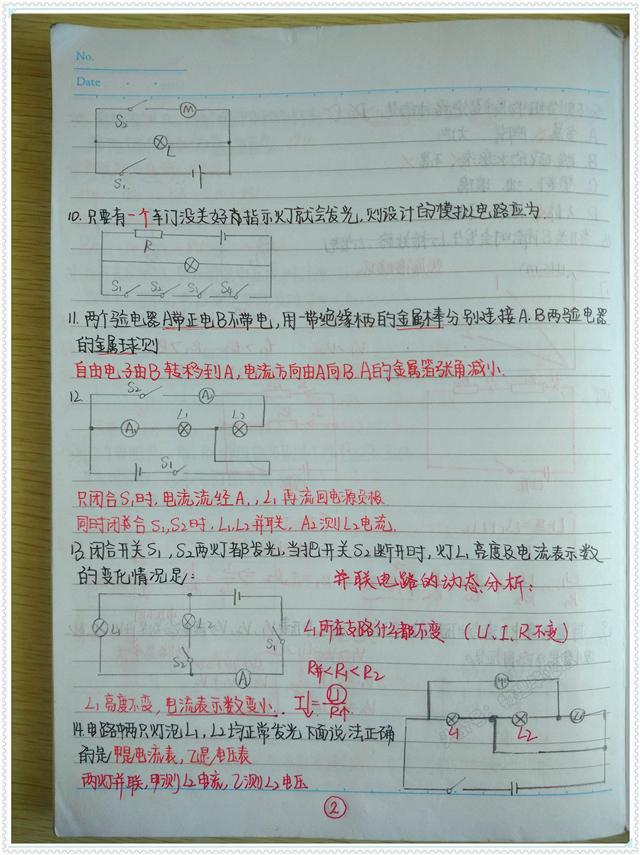 No.
Date
S₂ M
L
S₁
10. 只要有一个车门没关好,指示灯就会发光,则设计的模拟电路应为
R
S₁ S₂ S₃ S₄
11. 两个验电器A带正电B不带电,用一带绝缘柄的金属棒分别连接A.B两验电器
的金属球则
自由电子由B转移到A,电流方向由A向B.A的金属箔张角减小.
12.
S₂ A₂
A₁ L₁ L₂
S₁
只闭合S₁时,电流流经A₁,L₁再流回电源负极
同时闭合S₁,S₂时,L₁,L₂并联,A2测L2电流.
13. 闭合开关S₁,S₂两灯都发光,当把开关S₂断开时,灯L₁亮度及电流表示数
的变化情况是:
并联电路的动态分析:
L₁ L₂ S₁
S₂
A
L₁所在支路什么都不变 (U,I,R不变)
R并<R₁<R₂
L₁亮度不变,电流表示数变小. I↓=U/R↑
14. 电路中两只灯泡L₁,L₂均正常发光下面说法正确
的是甲是电流表,乙是电压表
两灯并联,甲测L₂电流,乙测L₂电压
甲
L₁ L₂ 乙
②